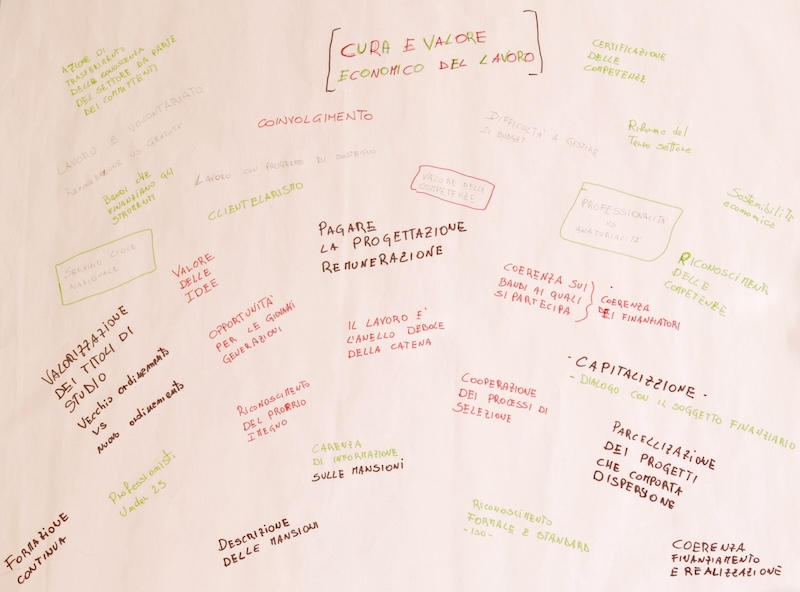 CURA E VALORE
ECONOMICO DEL LAVORO
AZIONE DI
TRASFERIMENTO
DELLA CONOSCENZA
DEL SETTORE DA PARTE
DEI COMPETENTI
CERTIFICAZIONE
DELLE
COMPETENZE
COINVOLGIMENTO
LAVORO E VOLONTARIATO
REMUNERAZIONE VS GRATUITÀ
DIFFICOLTÀ A GESTIRE
IL BUDGET
Riforma del
Terzo settore
BANDI CHE
FINANZIANO GLI
STRUMENTI
LAVORO CON PROGETTO DI SOSTEGNO
CLIENTELARISMO
VALORE DELLE
COMPETENZE
PROFESSIONALITÀ
VS
AMATORIALITÀ
Sostenibilità
economica
SERVIZIO CIVILE
NAZIONALE
VALORE
DELLE
IDEE
PAGARE
LA PROGETTAZIONE
REMUNERAZIONE
COERENZA SUI
BANDI AI QUALI
SI PARTECIPA
COERENZA
DEI FINANZIATORI
RICONOSCIMENTI
DELLE
COMPETENZE
VALORIZZAZIONE
DEI TITOLI DI
STUDIO
Vecchio ordinamento
VS
nuovo ordinamento
OPPORTUNITÀ
PER LE GIOVANI
GENERAZIONI
IL LAVORO E'
L'ANELLO DEBOLE
DELLA CATENA
- CAPITALIZZIONE -
- DIALOGO CON IL SOGGETTO FINANZIARIO
RICONOSCIMENTO
DEL PROPRIO
IMEGNO
COOPERAZIONE
DEI PROCESSI DI
SELEZIONE
PARCELLIZAZIONE
DEI PROGETTI
CHE COMPORTA
DISPERSIONE
CARENZA
DI INFORMAZIONE
SULLE MANSIONI
Professionisti
Under 25
FORMAZIONE
CONTINUA
DESCRIZIONE
DELLE MANSIONI
RICONOSCIMENTO
FORMALE E STANDARD
- ISO -
COERENZA
FINANZIAMENTO
E REALIZZAZIONE